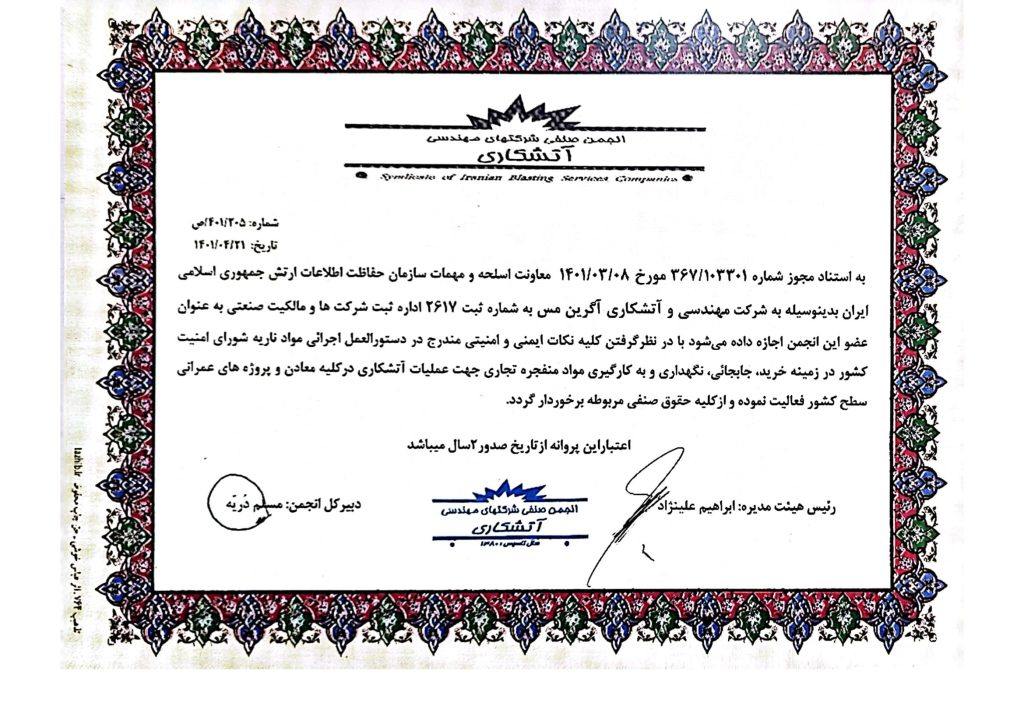 انجمن صنفی شرکتهای مهندسی
آتشکاری
Syndicate of Iranian Blasting Services Companies
شماره: ۴۰۱/۲۰۵/ص
تاریخ: ۱۴۰۱/۰۴/۲۱
به استناد مجوز شماره ۳۶۷/۱۰۳۳۰۱ مورخ ۱۴۰۱/۰۳/۰۸ معاونت اسلحه و مهمات سازمان حفاظت اطلاعات ارتش جمهوری اسلامی
ایران بدینوسیله به شرکت مهندسی و آتشکاری آگرین مس به شماره ثبت ۲۶۱۷ اداره ثبت شرکت ها و مالکیت صنعتی به عنوان
عضو این انجمن اجازه داده می‌شود با در نظرگرفتن کلیه نکات ایمنی و امنیتی مندرج در دستورالعمل اجرائی مواد ناریه شورای امنیت
کشور در زمینه خرید، جابجائی، نگهداری و به کارگیری مواد منفجره تجاری جهت عملیات آتشکاری درکلیه معادن و پروژه های عمرانی
سطح کشور فعالیت نموده و ازکلیه حقوق صنفی مربوطه برخوردار گردد.
اعتباراین پروانه ازتاریخ صدور۲سال میباشد
رئیس هیئت مدیره: ابراهیم علینژاد
دبیرکل انجمن: مسلم دُریّه
انجمن صنفی شرکتهای مهندسی
آتشکاری
سال تاسیس: ۱۳۸۰